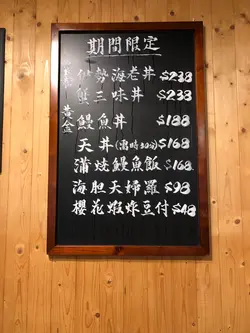 期間限定
伊勢海老丼 $238
蟹三味丼 $238
黃金
鰻魚丼 $188
天丼(需時30分) $168
蒲燒鰻魚飯 $168
海胆天婦羅 $98
櫻花蝦炸豆付 $48